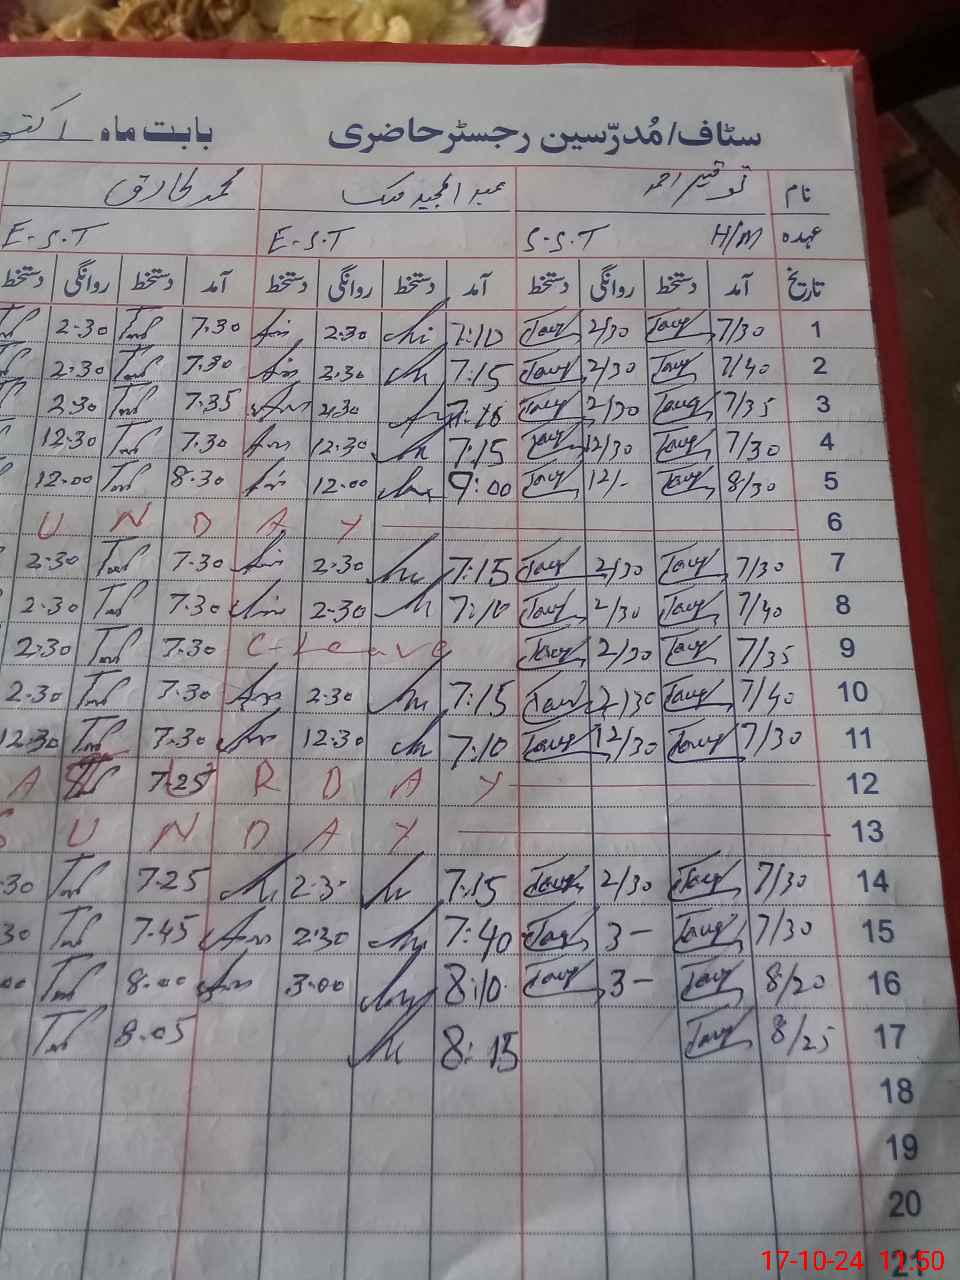 سٹاف/مُدرّسین رجسٹر حاضری بابت ماہ
نام توقیر احمد عبد المجید ملک محمد طارق
عہدہ H/M S-S-T E-S-T E-S-T
تاریخ آمد دستخط روانگی دستخط آمد دستخط روانگی دستخط آمد دستخط روانگی دستخط
1 7/30 Tauq 2/30 Tauq 7:10 2:30 7.30 2.30
2 7/40 Tauq 2/30 Tauq 7:15 2:30 7.30 2.30
3 7/35 Tauq 2/30 Tauq 2:30 7.35 2.30
4 7/30 Tauq 12/30 Tauq 7:15 12.30 7.30 12.30
5 8/30 Tauq 12/- Tauq 9:00 12.00 8.30 12.00
6 UNDAY
7 7/30 Tauq 2/30 Tauq 7:15 2.30 7.30 2.30
8 7/40 Tauq 2/30 Tauq 7:10 2.30 7.30 2.30
9 7/35 Tauq 2/30 Tauq C-Leave 7.30 2.30
10 7/40 Tauq 2/30 Tauq 7:15 2.30 7.30 2.30
11 7/30 Tauq 12/30 Tauq 7:10 12.30 7.30 12.30
12 A T U R D A Y 7.25
13 SUNDAY
14 7/30 Tauq 2/30 Tauq 7:15 2:3 7.25 :30
15 7/30 Tauq 3- Tauq 7:40 2:30 7.45 30
16 8/20 Tauq 3- Tauq 8:10 3.00 8.00 00
17 8/25 Tauq 8:15 8.05
18
19
20
21
17-10-24 11:50